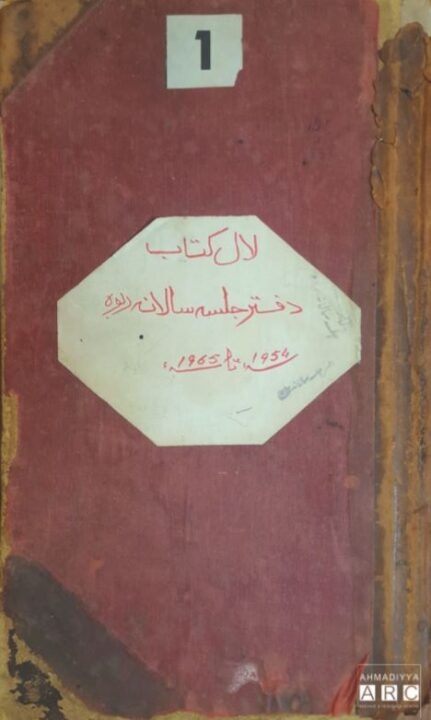 1
لال کتاب
دفتر جلسہ سالانہ ربوہ
1954ء تا 1965ء
AHMADIYYA
ARC